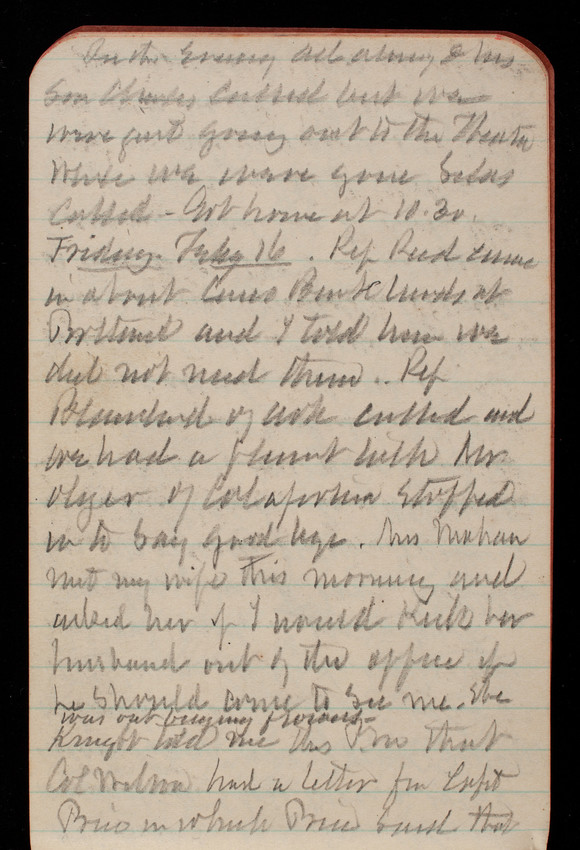 In the evening
Son Charles called but we
were just going out to the Theatre
While we were gone Silas
Called - Got home at 10.30.
Friday Feby 16. Rep Reed came
in about Back lands at
Portland and I told him we
did not need them.. Rep
Blanchard of called and
we had a pleasant talk Mr
of California stopped
in to say good bye. Mrs Mahan
met my wife this morning and
asked her if I would kick her
husband out of the office if
he should come to see me. She
was out buying
Knight told me this Pm that
Col Wilson had a letter fm Capt
Price in which Price said that